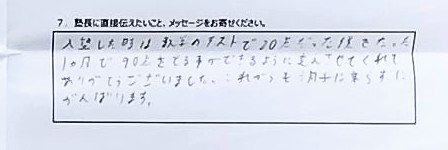 7. 塾長に直接伝えたいこと、メッセージをお寄せください。
入塾した時は数学のテストで20点だった僕をたった
1ヶ月で90点をとる事ができるように変えさせてくれて
ありがとうございました。これからも 調子に乗らずに
がんばります。